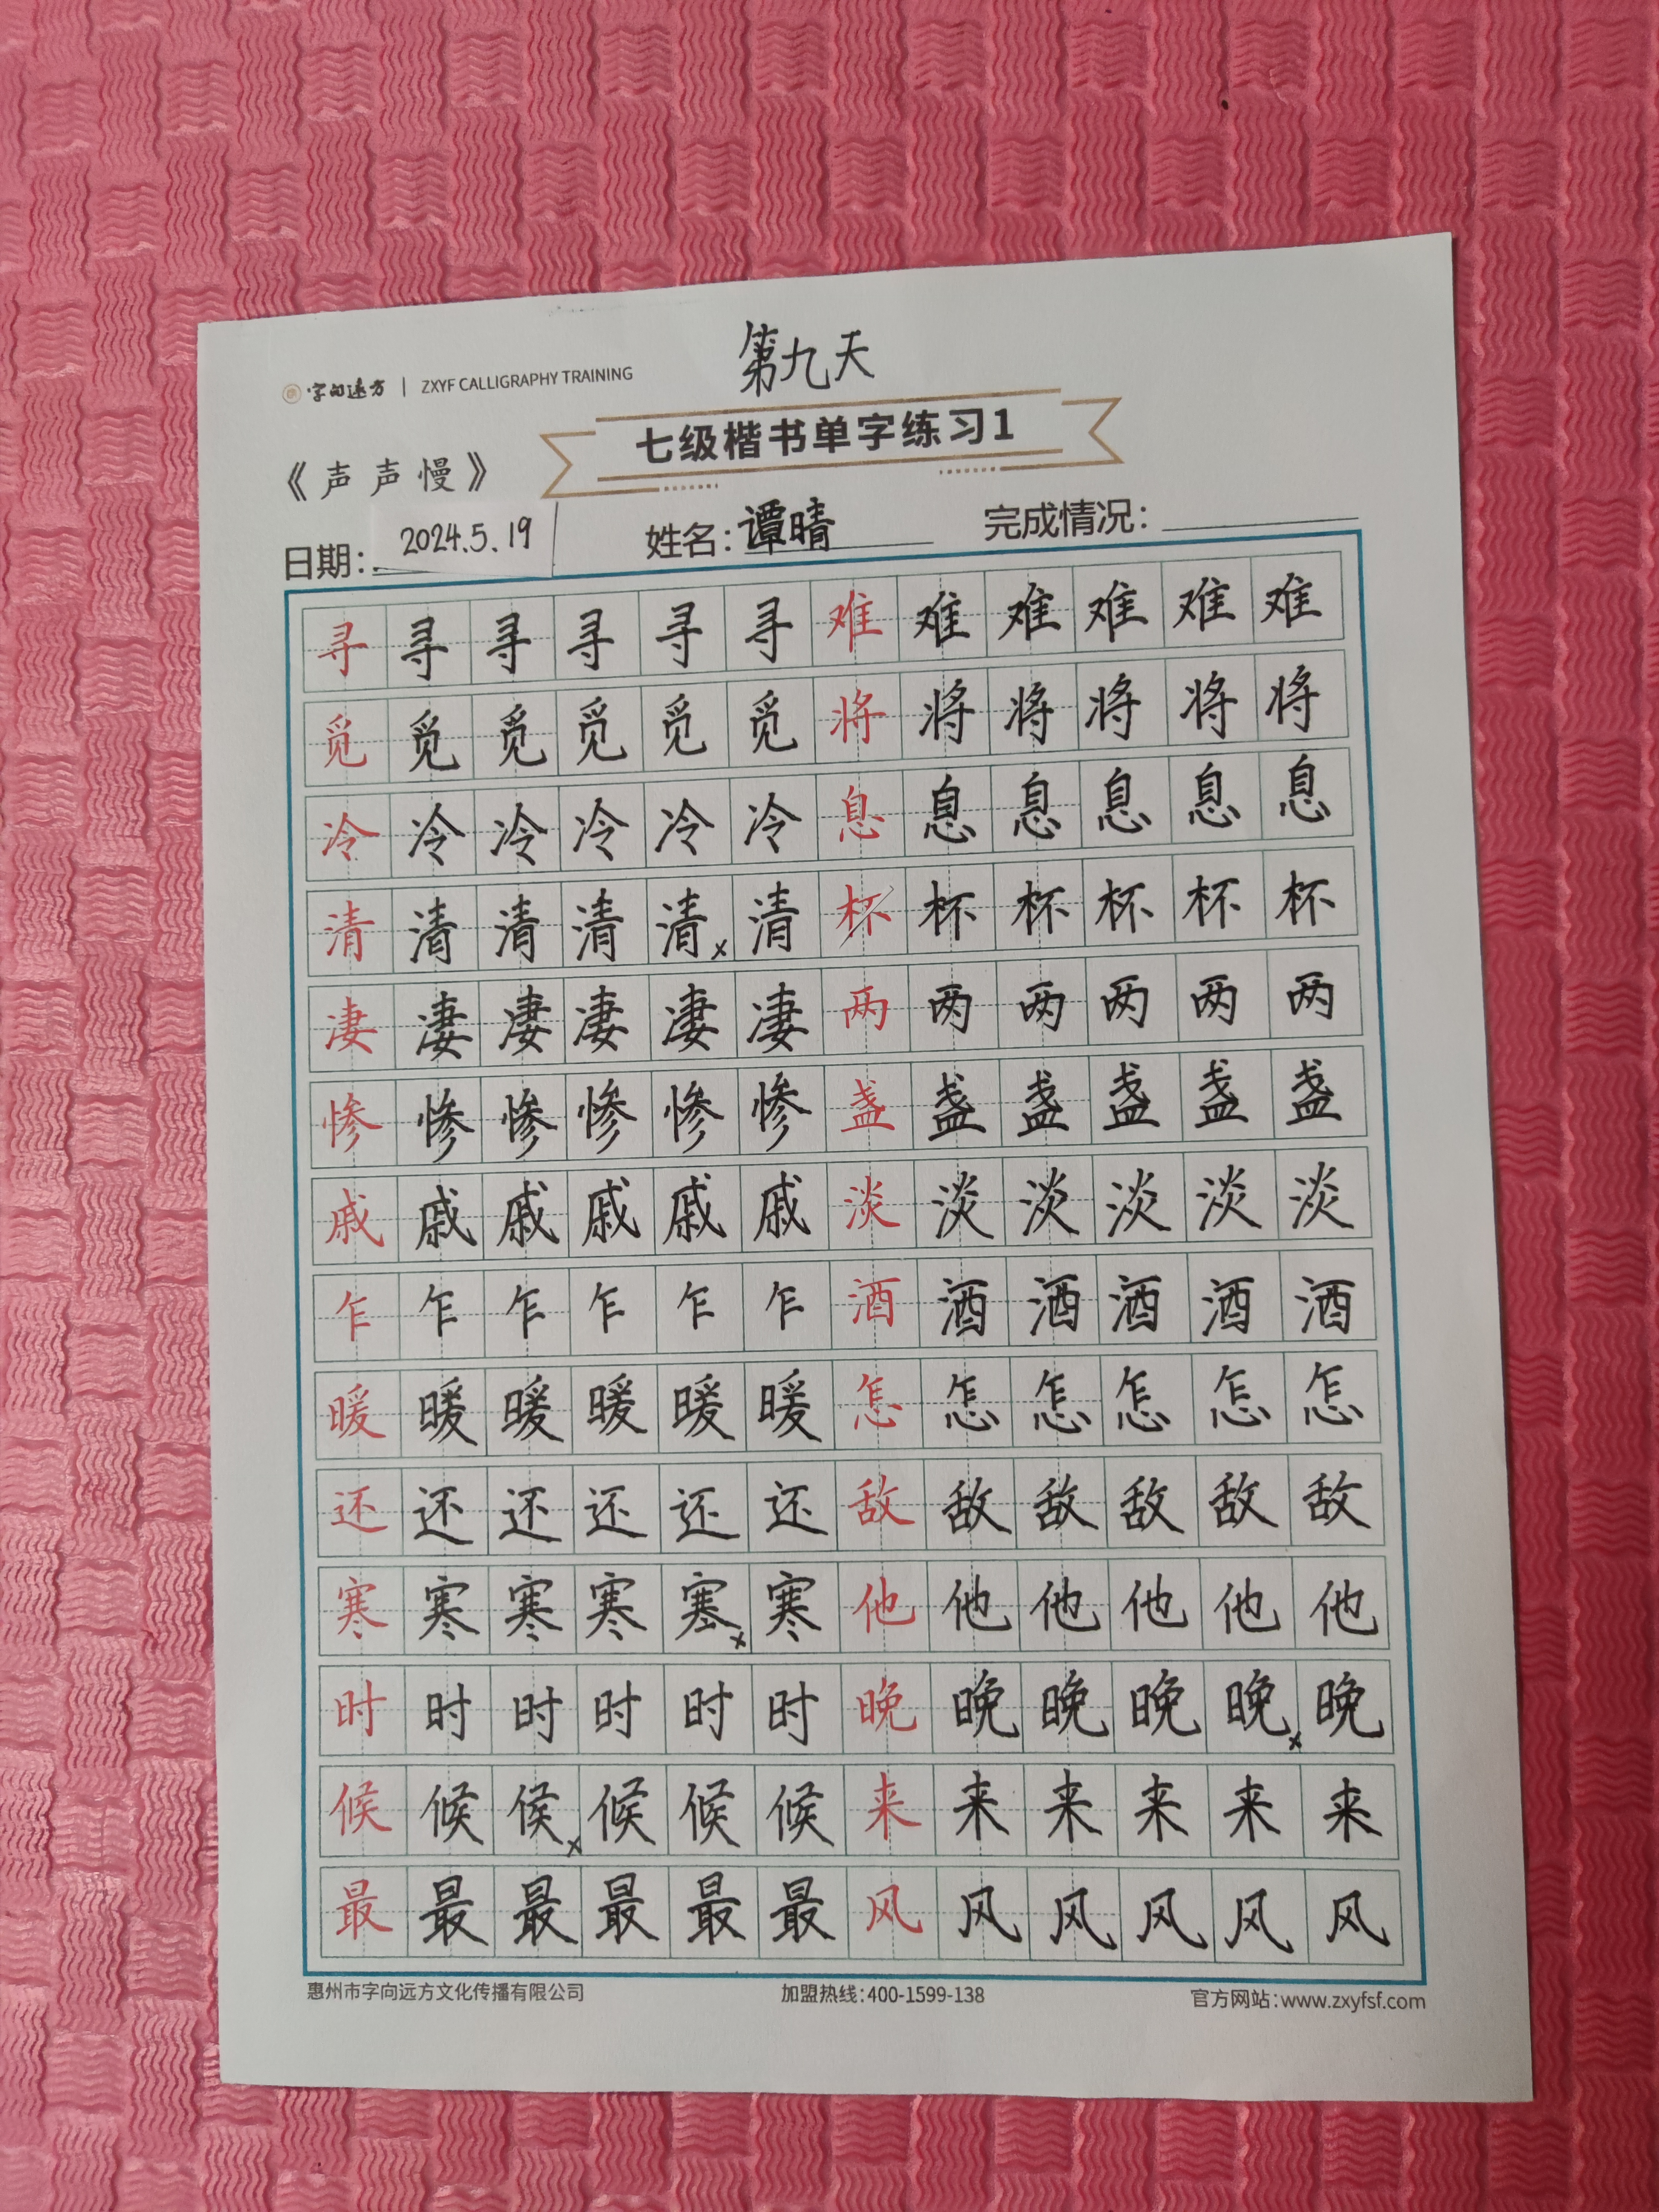 第九天
字向远方 | ZXYF CALLIGRAPHY TRAINING
七级楷书单字练习1
《声声慢》
日期: 2024.5.19 姓名: 谭晴 完成情况:
寻寻寻寻寻寻难难难难难难
觅觅觅觅觅觅将将将将将将
冷冷冷冷冷冷息息息息息息
清清清清清x清杯杯杯杯杯杯
凄凄凄凄凄凄两两两两两两
惨惨惨惨惨惨盏盏盏盏盏盏
戚戚戚戚戚戚淡淡淡淡淡淡
乍乍乍乍乍乍酒酒酒酒酒酒
暖暖暖暖暖暖怎怎怎怎怎怎
还还还还还还敌敌敌敌敌敌
寒寒寒寒塞x寒他他他他他他
时时时时时时晚晚晚晚晚x晚
候候候x候候候来来来来来来
最最最最最最风风风风风风
惠州市字向远方文化传播有限公司 加盟热线:400-1599-138 官方网站:www.zxyfsf.com